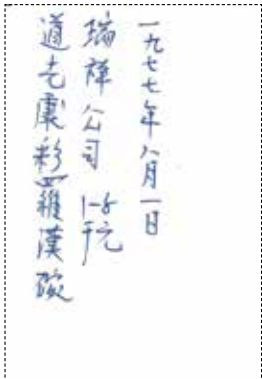 一九七七年八月一日
瑞祥公司 1-5千元
道光粉彩羅漢碗